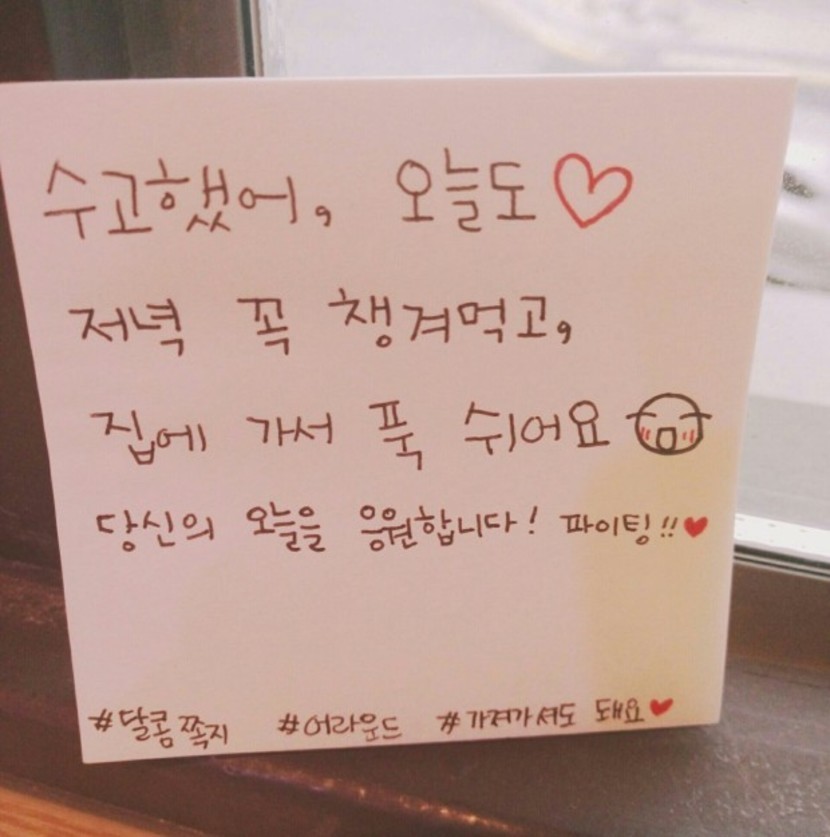 수고했어, 오늘도♡
저녁 꼭 챙겨먹고,
집에 가서 푹 쉬어요
당신의 오늘을 응원합니다! 파이팅!!♥
#달콤쪽지 #어라운드 #가져가셔도 돼요♥